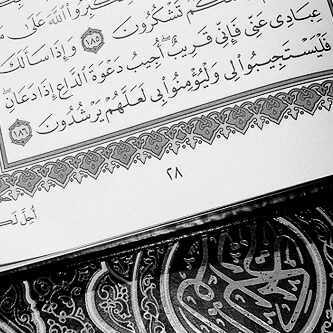 كبروا الله على م
تشكرون ١٨٥ وإذا سألك
عبادي عني فإني قريب أجيب دعوة الداع إذا دعان
فليستجيبوا لي وليؤمنوا بي لعلهم يرشدون ١٨٦
٢٨
أحل لك